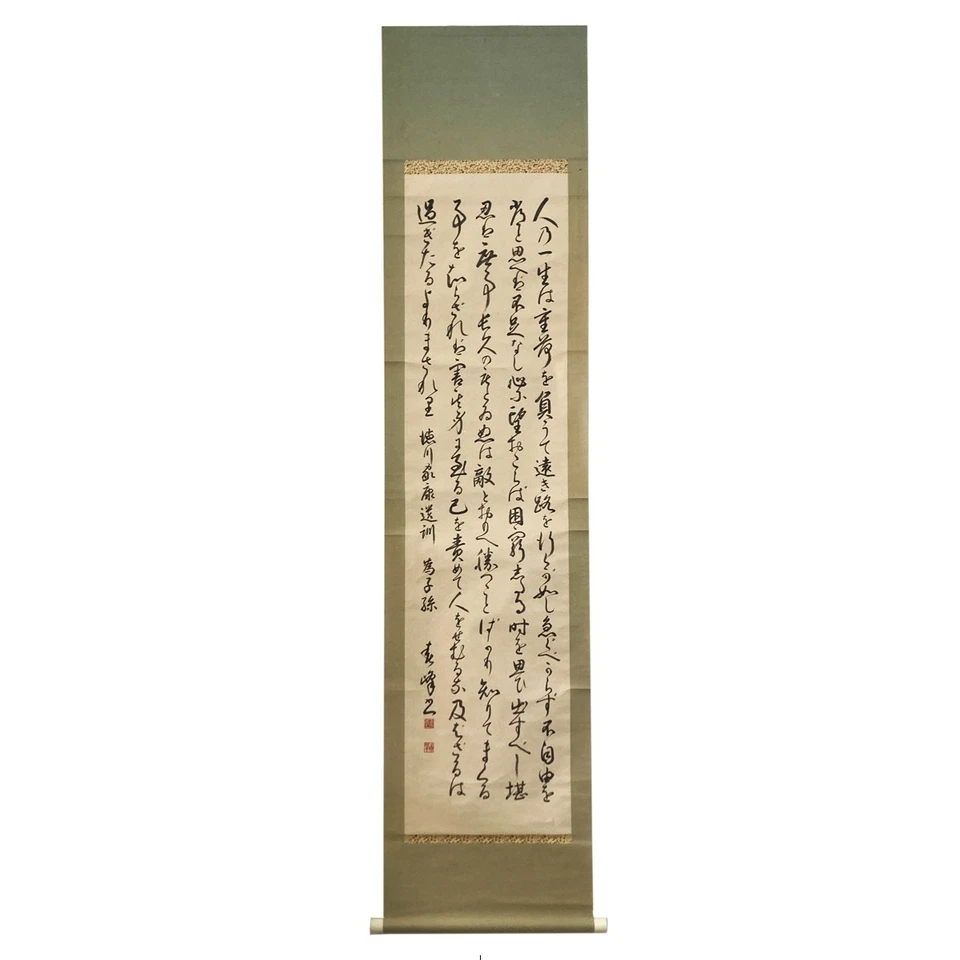 人の一生は重荷を負うて遠き路を行くが如し急ぐべからず不自由を
常と思へば不足なし心に望おこらば困窮したる時を思ひ出すべし堪
忍は無事長久の基いかりは敵とおもへ勝つことばかり知りてまくる
事を知らざれば害其身に至る己を責めて人をせむるな及ばざるは
過ぎたるよりまされり 徳川家康遺訓 為子孫 春峰書